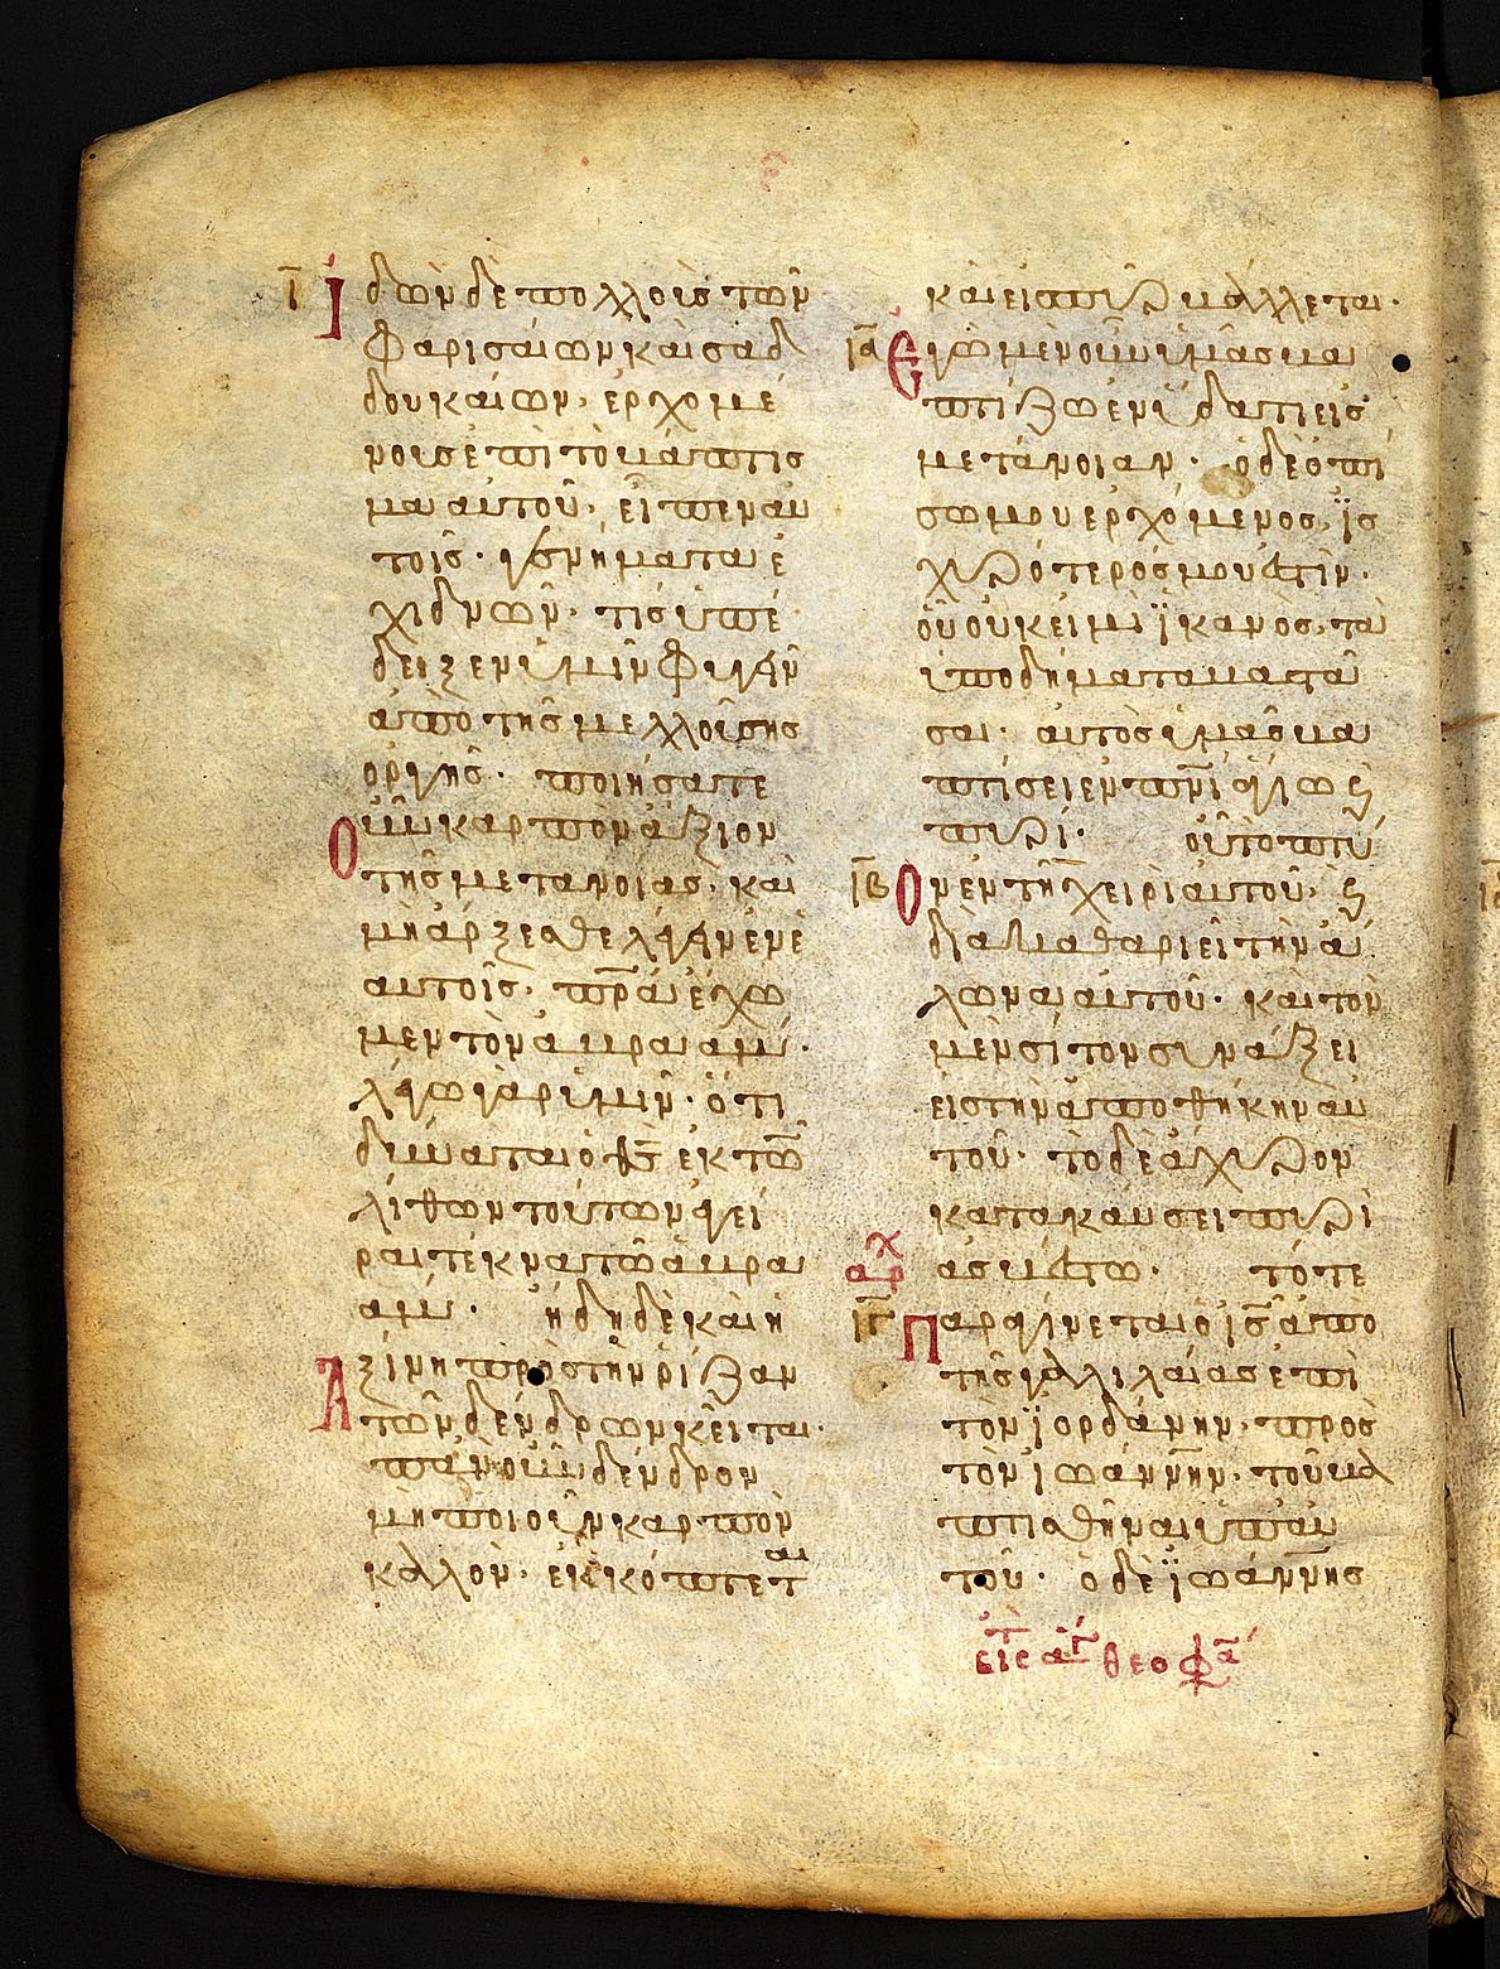 ῑ Ἰδὼν δὲ πολλοὺς τῶν
Φαρισαίων καὶ σαδ
δουκαίων, ἐρχομέ
νους ἐπὶ τὸ βάπτισ
μα αὐτοῦ, εἶπεν αὐ
τοῖς· γεννήματα ἐ
χιδνῶν· τίς ὑπέ
δειξεν ὑμῖν φυγεῖν
ἀπὸ τῆς μελλούσης
ὀργῆς· ποιήσατε
Οὖν καρπὸν ἄξιον
τῆς μετανοίας, καὶ
μὴ ἄρξεσθε λέγειν ἐν ἑ
αυτοῖς, πρ̅α ἔχο
μεν τὸν ἀβραάμ·
λέγω γὰρ ὑμῖν· ὅτι
δύναται ὁ θς̅ ἐκ τῶ̅
λίθων τούτων ἐγεῖ
ραι τέκνα τῶ ἀβρα
άμ· ἤδη δὲ καὶ ἡ
Ἀξίνη πρὸς τὴν ῥίζαν
τῶν δένδρων κεῖται·
πᾶν οὖν δένδρον
μὴ ποιοῦν καρπὸν
καλλὸν· ἐκκόπτεται
καὶ εἰς πῦρ βάλλεται·
ι̅α̅ Ἐγὼ μὲν οὖν ὑμᾶς βα
πτίζω ἐν ὕδατι εἰς
μετάνοιαν· ὁ δὲ ὀπί
σω μου ἐρχόμενος, ἰσ
χυρότερός μου ἐστὶν·
οὗ οὐκ εἰμὶ ἱκανὸς, τὰ
ὑποδήματα βαστά
σαι· αὐτὸς ὑμᾶς βα
πτίσει ἐν πν̅ι ἁγίω ϗ
πυρί· οὗ τὸ πτύ
ι̅β̅ Ον ἐν τῆ χειρὶ αὐτοῦ, ϗ
διακαθαριεῖ τὴν ἅ
λωνα αὐτοῦ· καὶ τὸν
μὲν σίτον συνάξει
εἰς τὴν ἀποθήκην αὐ
τοῦ· τὸ δὲ ἄχυρον
κατακαύσει πυρὶ
αρχ ἀσβέστω· τότε
ι̅γ̅ Παραγίνεται ὁ ις̅ ἀπὸ
τῆς γαλιλαίας ἐπὶ
τὸν ἰορδάνην, πρὸς
τὸν ἰωάννην, τοῦ βα
πτισθῆναι ὑπ' αὐ
τοῦ· ὁ δὲ ἰωάννης
εἰς τ ἁγ θεοφα